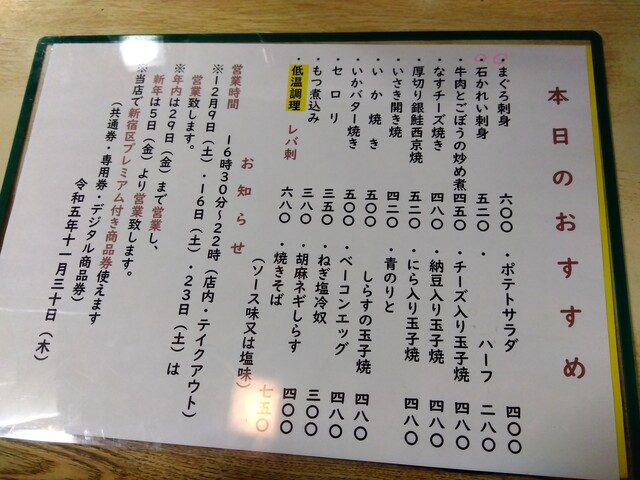 本日のおすすめ
・まぐろ刺身 六〇〇
・石かれい刺身 五二〇
・牛肉とごぼうの炒め煮 四五〇
・なすチーズ焼き 四八〇
・厚切り銀鮭西京焼 五二〇
・いさき開き焼 四二〇
・いか焼き 五〇〇
・いかバター焼き 五〇〇
・セロリ 三五〇
・もつ煮込み 三八〇
・低温調理 レバ刺 六八〇
・ポテトサラダ 四〇〇
・ ハーフ 二八〇
・チーズ入り玉子焼 四八〇
・納豆入り玉子焼 四八〇
・にら入り玉子焼 四八〇
・青のりと
しらすの玉子焼 四八〇
・ベーコンエッグ 四八〇
・ねぎ塩冷奴 三〇〇
・胡麻ネギしらす 四〇〇
・焼きそば
(ソース味又は塩味) 七五〇
お知らせ
営業時間 16時30分~22時(店内・テイクアウト)
※12月9日(土)・16日(土)・23日(土)は
営業致します。
※年内は29日(金)まで営業し、
新年は5日(金)より営業致します。
※当店で新宿区プレミアム付き商品券使えます
(共通券・専用券・デジタル商品券)
令和五年十一月三十日(木)